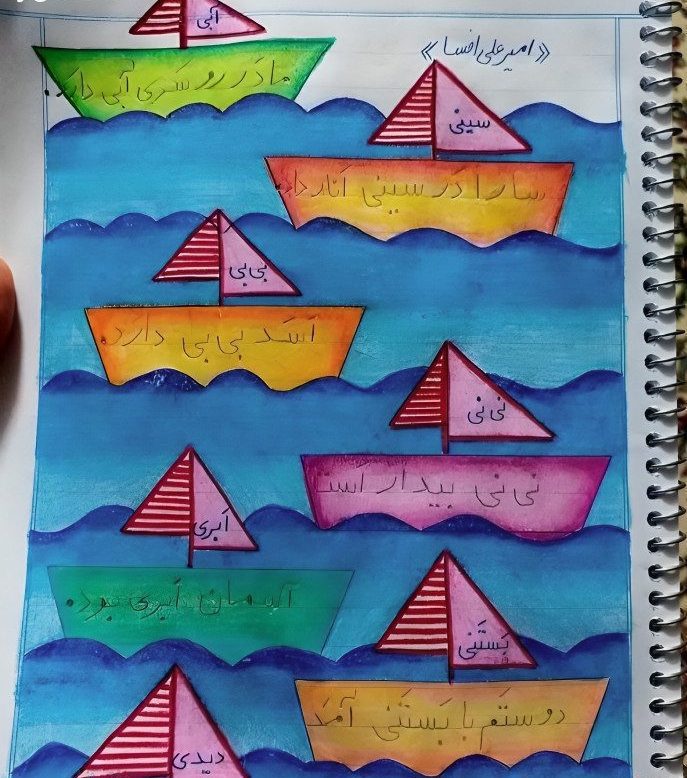 آبی
مادر روسری آبی دارد.
《امیرعلی افسا》
سینی
سارا در سینی انار دارد.
بی بی
اسد بی بی دارد.
نی نی
نی نی بیدار است
اَبری
آسمان اَبری بود.
بَستَنی
دوستَم با بَستَنی آمَد
دیدی